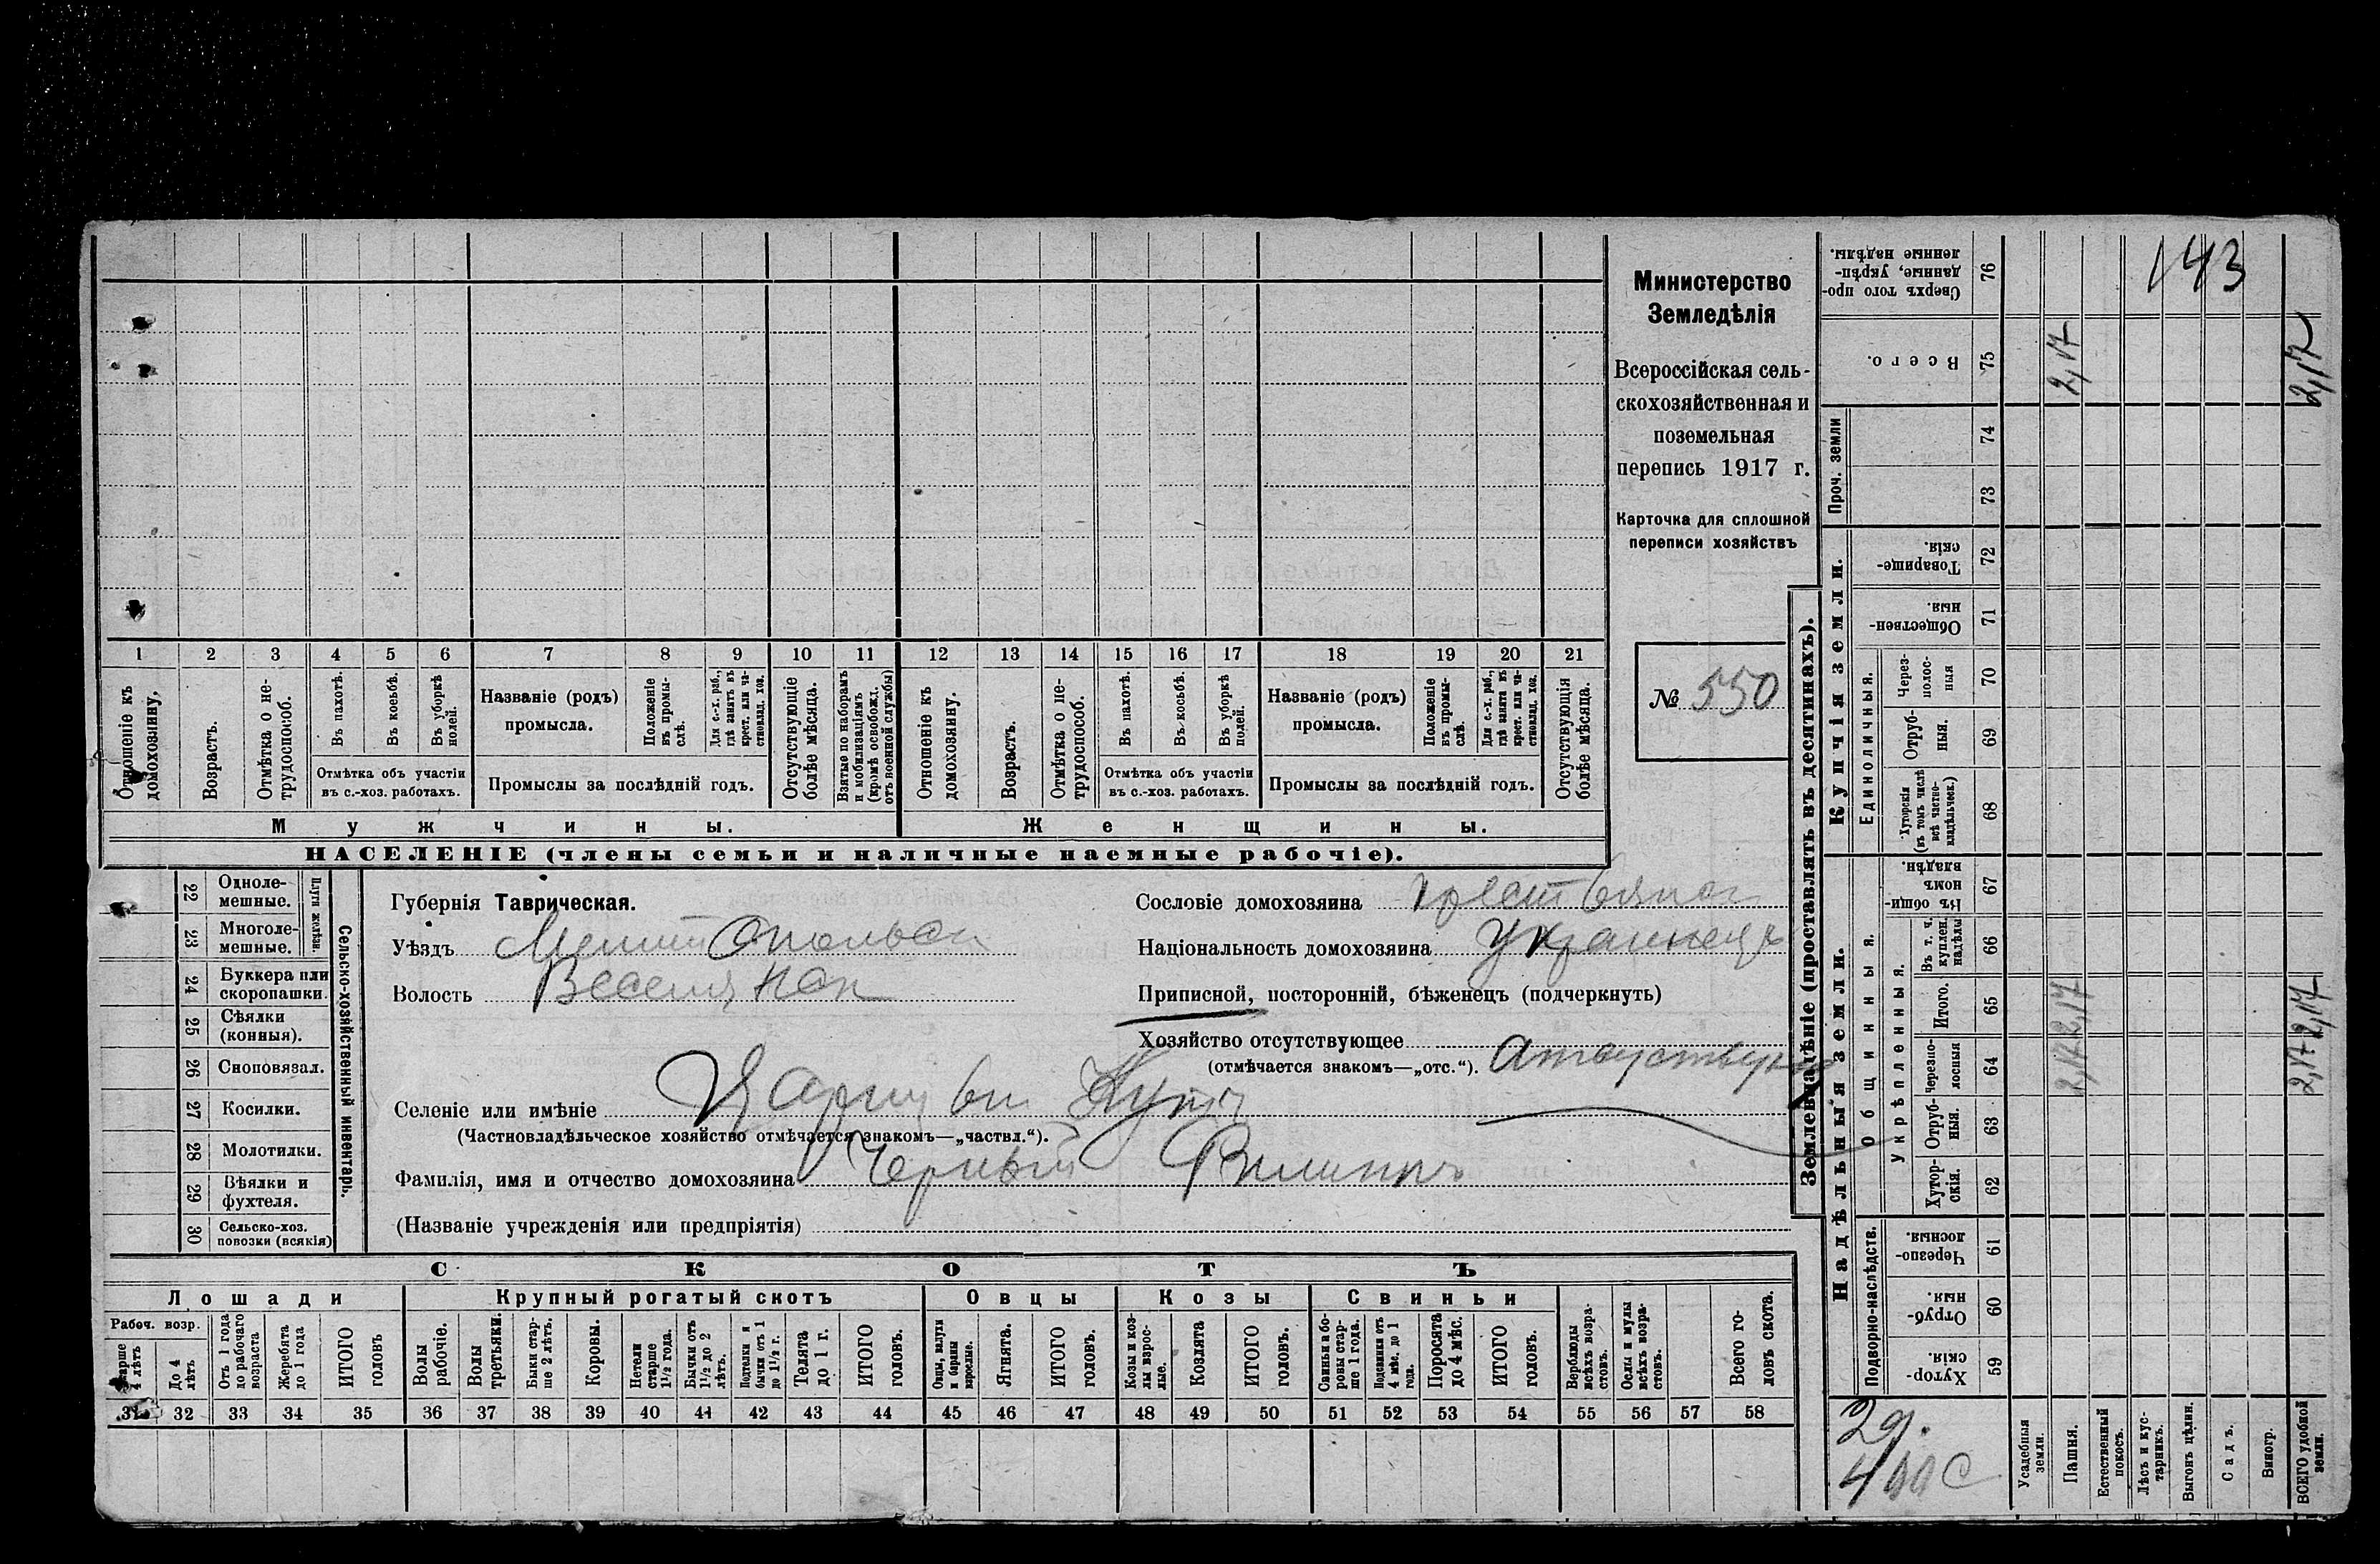 Министерство
Земледѣлія
Всероссійская сель-
скохозяйственная и
поземельная
перепись 1917 г.
Карточка для сплошной
переписи хозяйствъ
№ 550
1 2 3 4 5 6 7 8 9 10 11 12 13 14 15 16 17 18 19 20 21
Отношеніе къ домохозяину.
Возрастъ.
Отмѣтка о не-трудоспособ.
Въ пахотѣ.
Въ косьбѣ.
Въ уборкѣ полей.
Отмѣтка объ участіи въ с.-хоз. работахъ.
Названіе (родъ) промысла.
Положеніе въ промы-слѣ.
Для с.-х. раб., гдѣ занятъ въ крест. или ча-стновлад. хоз.
Промыслы за послѣдній годъ.
Отсутствующіе болѣе мѣсяца.
Взятые по наборамъ и мобилизаціямъ (кромѣ освобожд. отъ военной службы)
Отношеніе къ домохозяину.
Возрастъ.
Отмѣтка о не-трудоспособ.
Въ пахотѣ.
Въ косьбѣ.
Въ уборкѣ полей.
Отмѣтка объ участіи въ с.-хоз. работахъ.
Названіе (родъ) промысла.
Положеніе въ промы-слѣ.
Для с.-х. раб., гдѣ занята въ крест. или ча-стновлад. хоз.
Промыслы за послѣдній годъ.
Отсутствующія болѣе мѣсяца.
Мужчины.
Женщины.
НАСЕЛЕНІЕ (члены семьи и наличные наемные рабочіе).
22 Одноле-мешные.
23 Многоле-мешные.
Плуги желѣзн.
24 Буккера или скоропашки.
25 Сѣялки (конныя).
26 Сноповязал.
27 Косилки.
28 Молотилки.
29 Вѣялки и фухтеля.
30 Сельско-хоз. повозки (всякія)
Сельско-хозяйственный инвентарь.
Губернія Таврическая.
Уѣздъ Мелитопольск
Волость Веселянск
Селеніе или имѣніе Царицын Кутъ
(Частновладѣльческое хозяйство отмѣчается знакомъ—„частвл.“).
Фамилія, имя и отчество домохозяина Черный Филиппъ
(Названіе учрежденія или предпріятія)
Сословіе домохозяина
Національность домохозяина Украинецъ
Приписной, посторонній, бѣженецъ (подчеркнуть)
Хозяйство отсутствующее
(отмѣчается знакомъ—„отс.“).
СКОТЪ
Лошади
Крупный рогатый скотъ
Овцы
Козы
Свиньи
Рабоч. возр.
Старше 4 лѣтъ
До 4 лѣтъ
Отъ 1 года до рабочаго возраста
Жеребята до 1 года
ИТОГО головъ
Волы рабочіе.
Волы третьяки.
Быки стар-ше 2 лѣтъ.
Коровы.
Нетели старше 1½ года.
Бычки отъ 1½ до 2 лѣтъ.
Подтелки и бычки отъ 1 до 1½ г.
Телята до 1 г.
ИТОГО головъ.
Овцы, валухи и бараны взрослые.
Ягнята.
ИТОГО головъ.
Козы и коз-лы взрос-лые.
Козлята
ИТОГО головъ.
Свиньи и бо-ровы стар-ше 1 года.
Подсвинки отъ 4 мѣс. до 1 года.
Поросята до 4 мѣс.
ИТОГО головъ.
Верблюды всѣхъ возра-стовъ.
Ослы и мулы всѣхъ возра-стовъ.
Всего го-ловъ скота.
31 32 33 34 35 36 37 38 39 40 41 42 43 44 45 46 47 48 49 50 51 52 53 54 55 56 57 58
Землевладѣніе (проставлять въ десятинахъ).
Надѣльныя земли.
Купчія земли.
Проч. земли
Подворно-наслѣдств.
Общинныя.
Укрѣпленныя.
Единоличныя.
Хутор-скія. 59
Отруб-ныя. 60
Черезпо-лосныя. 61
Хутор-скія. 62
Отруб-ныя. 63
Черезпо-лосныя 64
Итого. 65
Въ т. ч. куплен. надѣлы 66
Въ общи-номъ владѣн. 67
Хуторскія (въ томъ числѣ всѣ частно-владѣльческ.) 68
Отруб-ныя. 69
Через-полос-ныя 70
Обществен-ныя. 71
Товарище-скія. 72
73
74
Всего. 75
Сверхъ того про-данные, укрѣп-ленные надѣлы. 76
143
2,17
2,17
2,17 2,17
2,17 2,17
Усадебныя земли.
Пашня.
Естественный покосъ.
Лѣсъ и кус-тарникъ.
Выгонъ цѣлин.
Садъ.
Виногр.
ВСЕГО удобной земли.
2д.
400 с